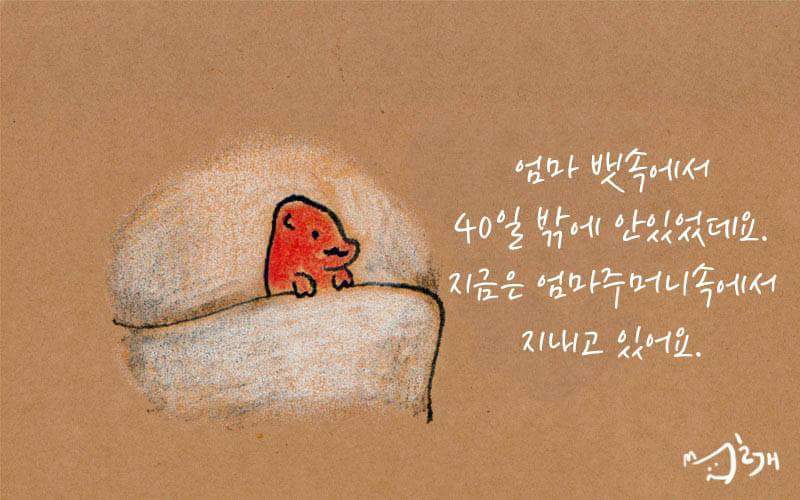 엄마 뱃속에서
40일 밖에 안있었데요.
지금은 엄마주머니속에서
지내고 있어요.